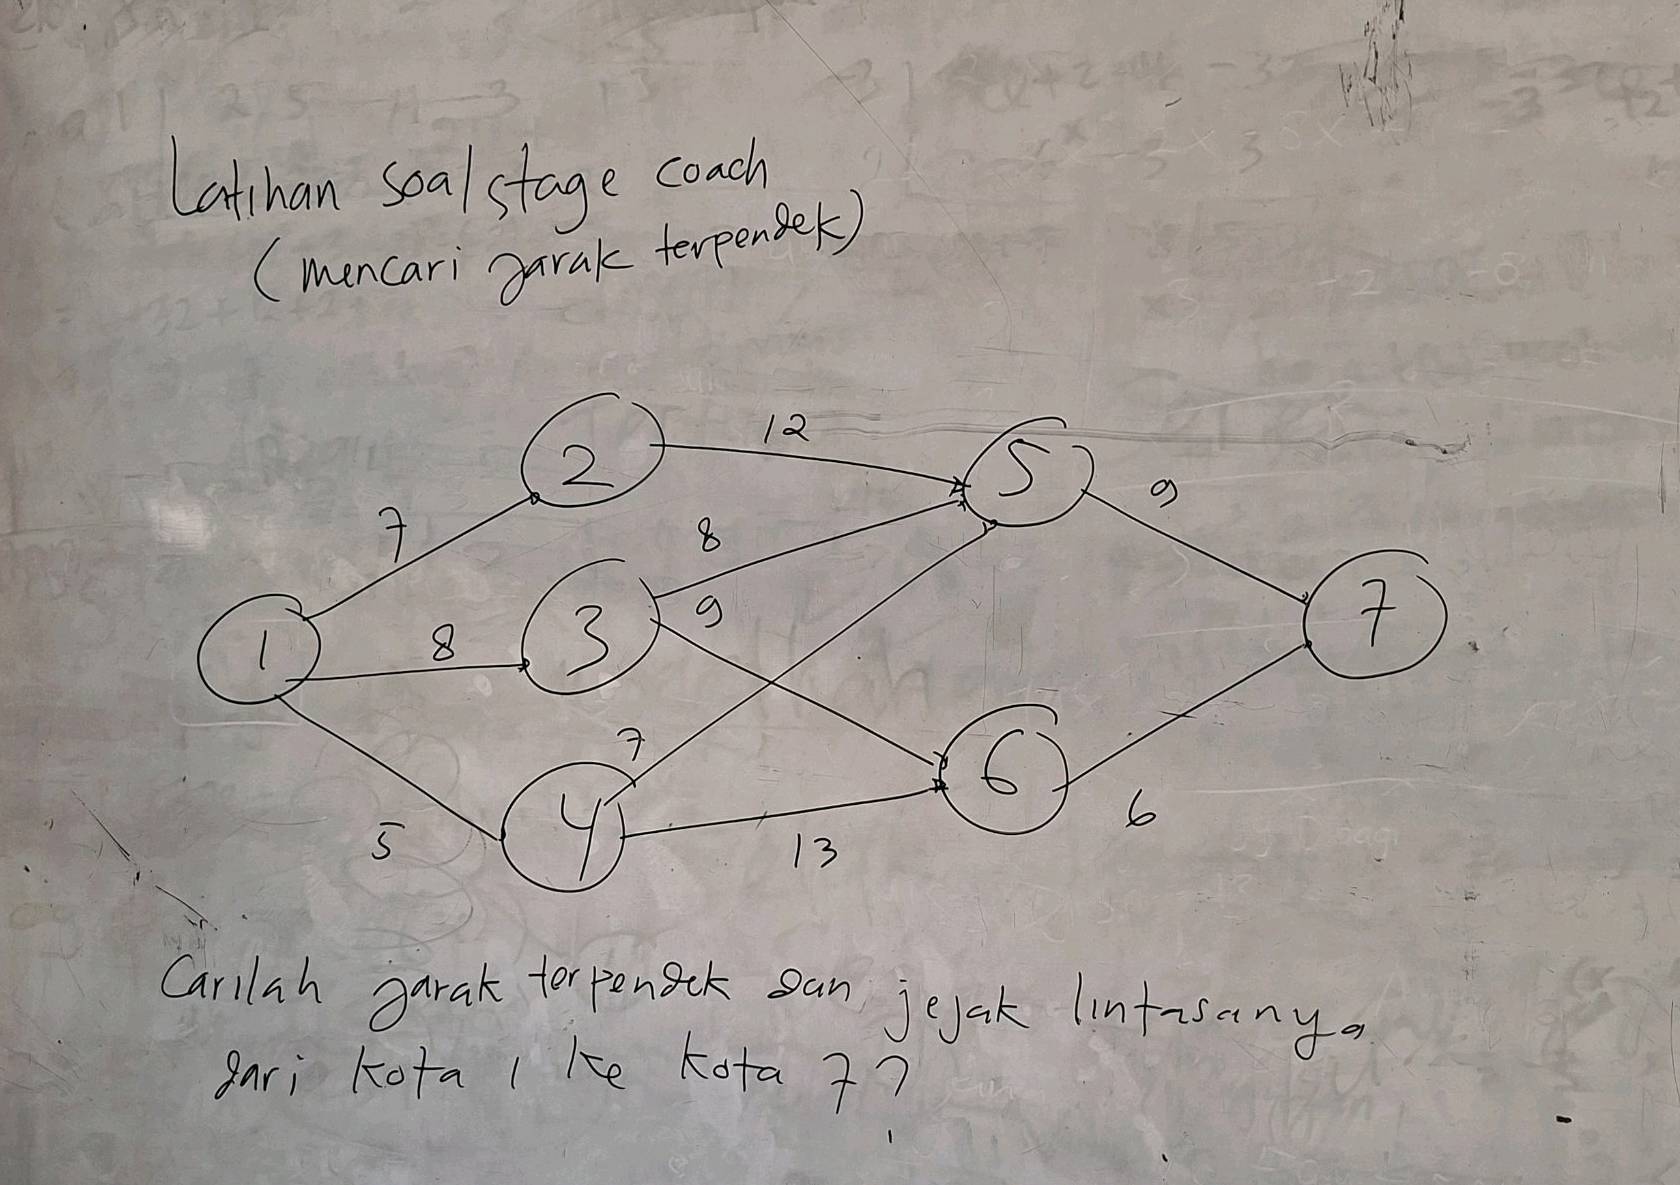 Latihan soal stage coach
(mencari jarak terpendek)
12
2
5
9
7
8
3
9
7
1
8
7
4
6
5
13
6
Carilah jarak terpendek dan jejak lintasanya
dari kota 1 ke kota 7?